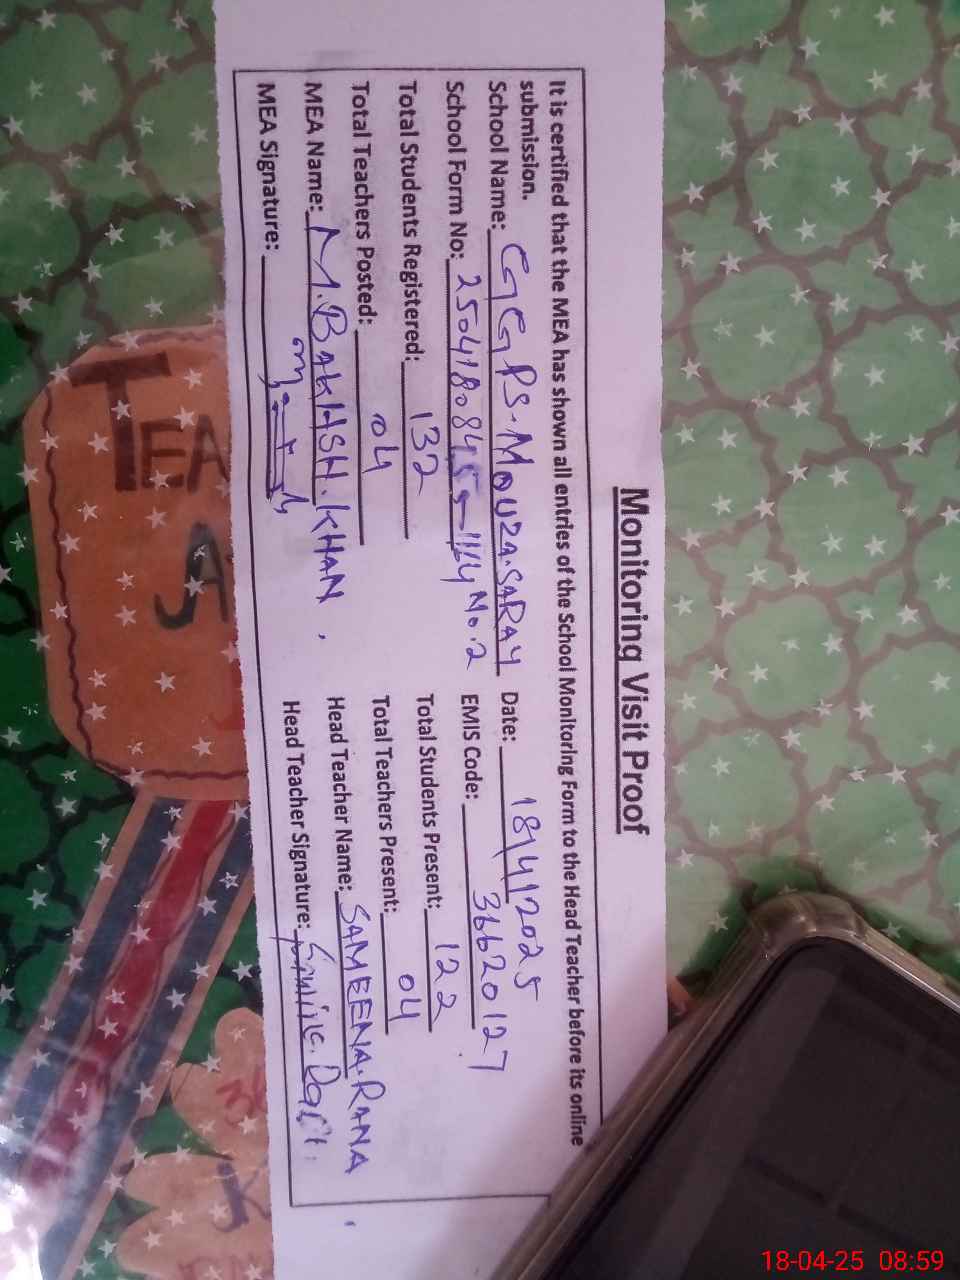 Monitoring Visit Proof
It is certified that the MEA has shown all entries of the School Monitoring Form to the Head Teacher before its online
submission.
School Name: GGPS. MOUZA. SARAY Date: 18/4/2025
No. 2
School Form No: EMIS Code: 36620127
Total Students Registered: 132 Total Students Present: 122
Total Teachers Posted: 04 Total Teachers Present: 04
MEA Name: M. BAKHSH. KHAN Head Teacher Name: SAMEENA. RANA
MEA Signature: Head Teacher Signature:
TEA
18-04-25 08:59